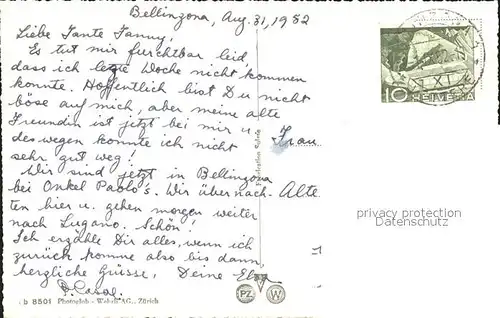 Bellinzona, Aug. 31, 1952
Liebe Tante Fanny,
Es tut mir furchtbar leid,
dass ich letzte Woche nicht kommen
konnte. Hoffentlich bist Du nicht
böse auf mich, aber meine alte
Freundin ist jetzt bei mir u.
deswegen konnte ich nicht
sehr gut weg!
Wir sind jetzt in Bellinzona
bei Onkel Paolo's. Wir übernach-
ten hier u. gehen morgen weiter
nach Lugano. Schön!
Ich erzähle Dir alles, wenn ich
zurück komme also bis dann,
herzliche Grüsse, Deine Elsa
Frau
Alte
10 HELVETIA
XI
privacy protection
Datenschutz
b 8501 Photoglob - Wehrli AG., Zürich
PZ W